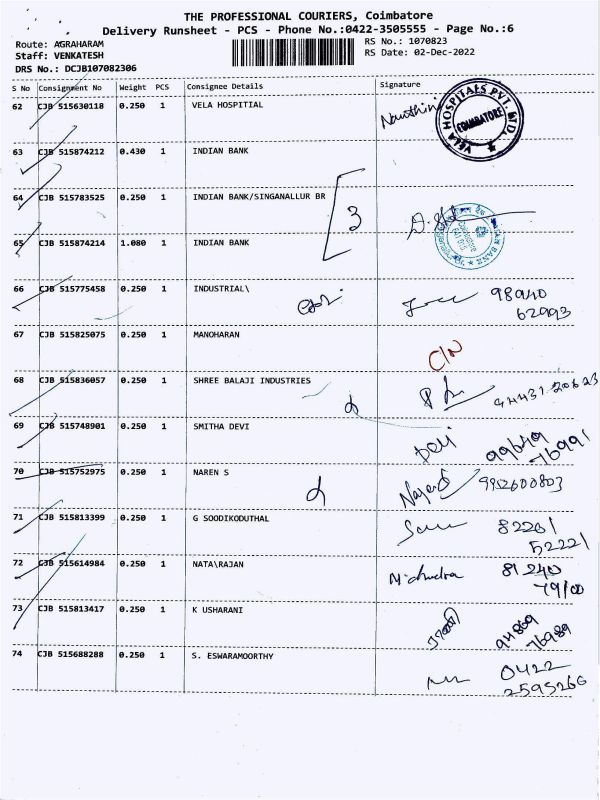 THE PROFESSIONAL COURIERS, Coimbatore
Delivery Runsheet - PCS - Phone No.:0422-3505555 - Page No.:6
Route: AGRAHARAM
RS No.: 1070823
Staff: VENKATESH
RS Date: 02-Dec-2022
DRS No.: DCJB107082306
S No Consignment No Weight PCS Consignee Details Signature
62 CJB 515630118 0.250 1 VELA HOSPITIAL
VELA HOSPITALS PVT. LTD. COIMBATORE
63 CJB 515874212 0.430 1 INDIAN BANK
64 CJB 515783525 0.250 1 INDIAN BANK/SINGANALLUR BR
3
65 CJB 515874214 1.080 1 INDIAN BANK
66 CJB 515775458 0.250 1 INDUSTRIAL\ 98940
62993
67 CJB 515825075 0.250 1 MANOHARAN C/N
68 CJB 515836057 0.250 1 SHREE BALAJI INDUSTRIES 94431 20623
69 CJB 515748901 0.250 1 SMITHA DEVI Devi 99649
76991
70 CJB 515752975 0.250 1 NAREN S 9952600803
71 CJB 515813399 0.250 1 G SOODIKODUTHAL 82201
52221
72 CJB 515614984 0.250 1 NATA\RAJAN 81240
79100
73 CJB 515813417 0.250 1 K USHARANI 94869
76989
74 CJB 515688288 0.250 1 S. ESWARAMOORTHY 0422
2595266